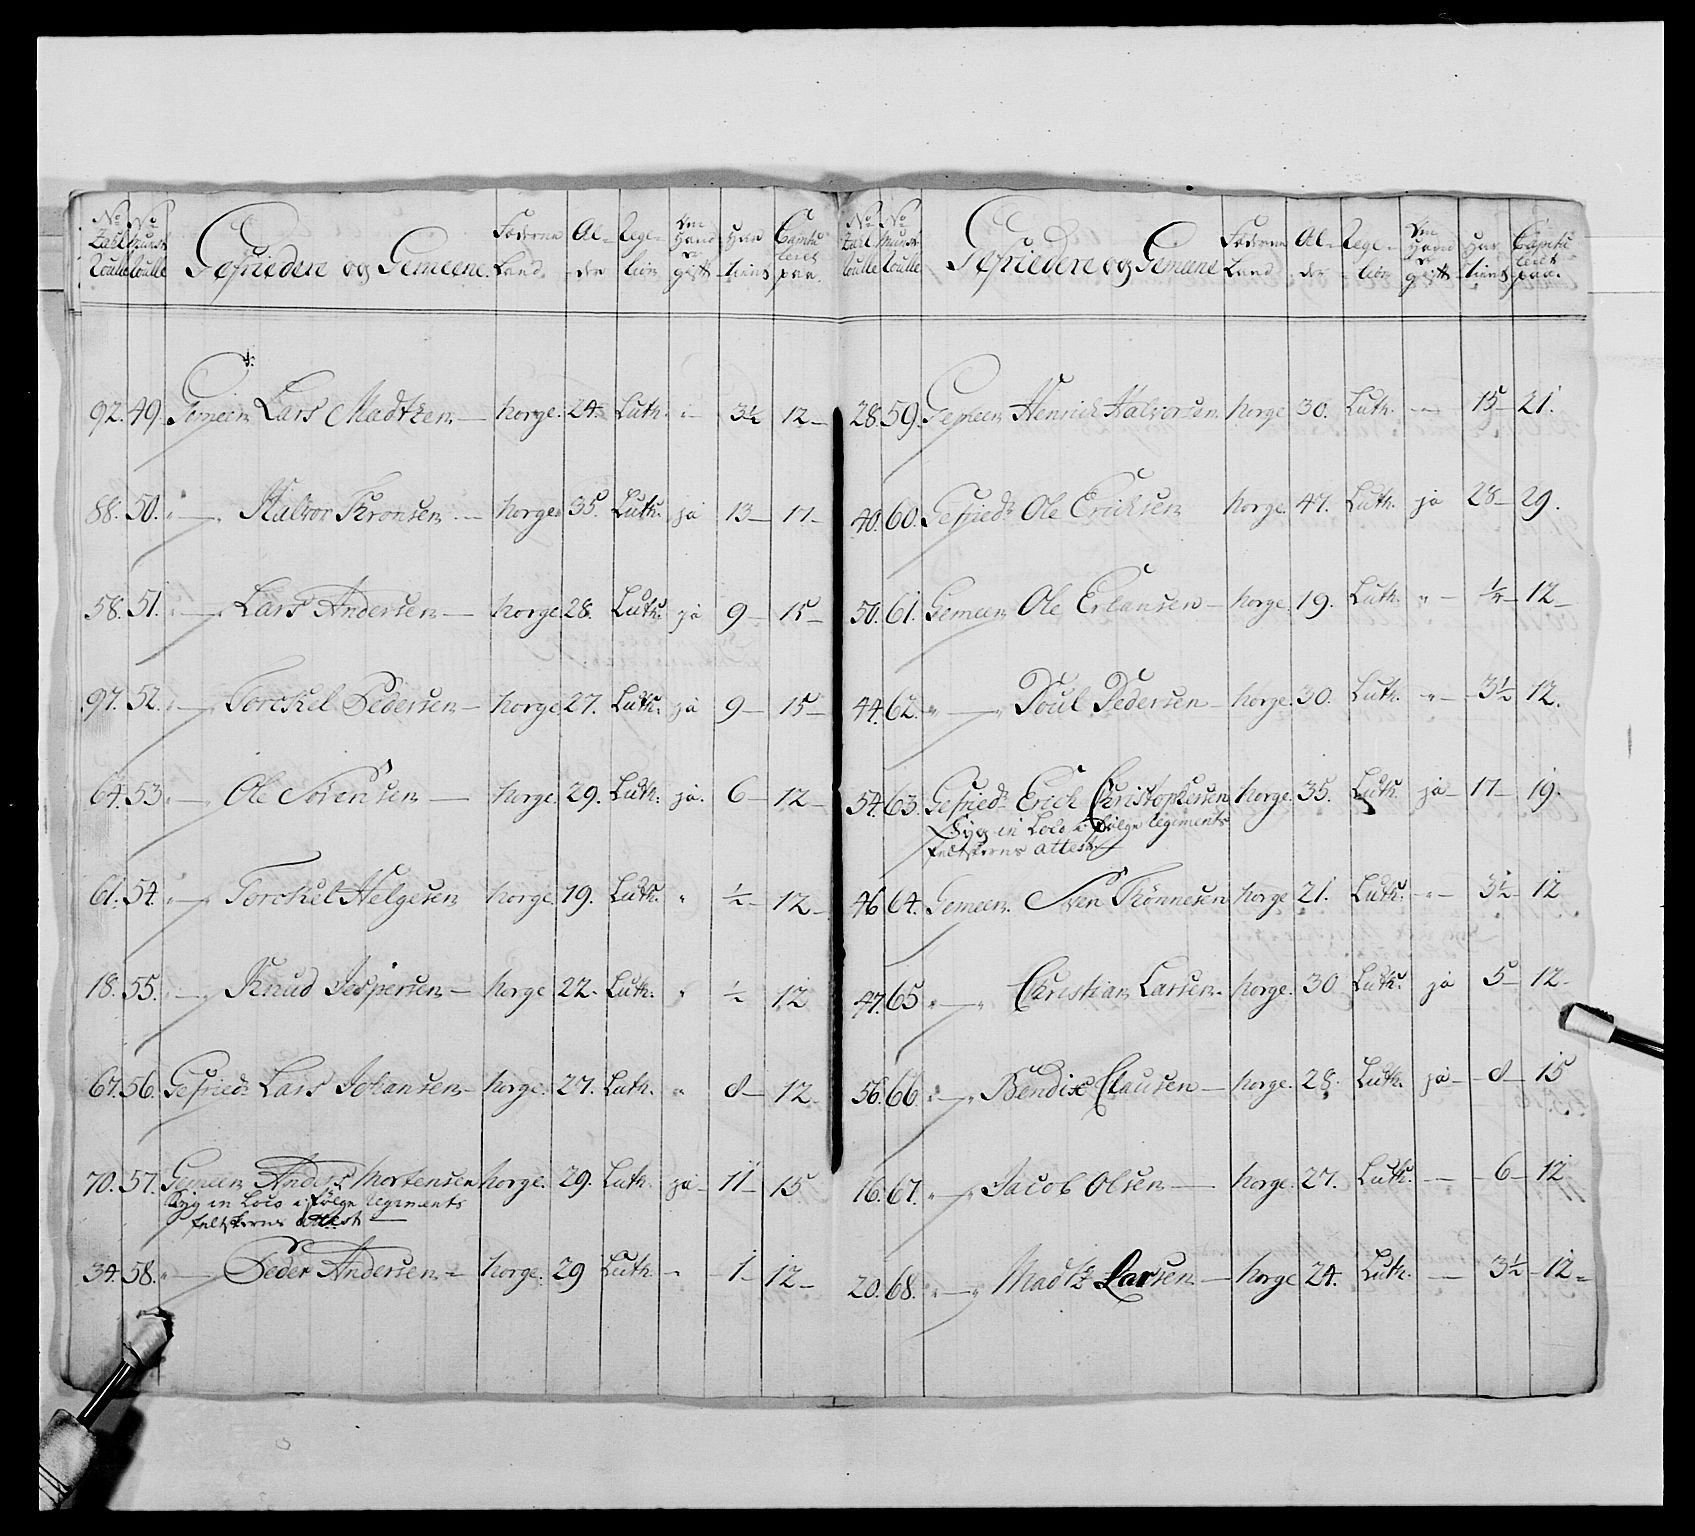 No No Gefriedere og Gemeene. Føderne Al- Relli- Om Hand Har Capitu
Zahl Munst Land der gion er tient leret
Roulle Roulle gift paa
92. 49. Gemeen Lars Madtzen — Norge. 24. Luth. " 3½ 12 —
88. 50. " — " Halvor Thronsen — Norge. 35. Luth. ja 13 — 17 —
58. 51. " — " Lars Andersen — Norge. 28. Luth. ja 9 — 15 —
97. 52. " — " Torckel Pedersen — Norge 27. Luth. ja 9 — 15 —
64. 53. " — Ole Sørensen — Norge. 29. Luth. ja. 6 — 12 —
61. 54. " — " Torckel Helgesen Norge. 19. Luth. " ½ — 12 —
18. 55. " — " Knud Jespersen — Norge 22. Luth. " ½ 12
67. 56. Gefried: Lars Johansen — Norge. 27. Luth. " 8 — 12.
70. 57. Gemeen Anders Mortensen Norge. 29. Luth. ja — 11 — 15
Syg in Loco i følge Regiments
feltskerns attest —
34. 58. " — Peder Andersen — Norge. 29 Luth — 1 — 12 —
No No Gefriedere og Gemeene Føderne Al- Relli- Om Hand Har Capitu
Zahl Munst Land der gion er tient leret
Roulle Roulle gift paa.
28. 59. Gemeen Henrich Halvorsen Norge 30. Luth. — 15 — 21.
40. 60. Gefried: Ole Erichsen Norge. 47. Luth. ja 28 — 29.
50. 61. Gemeen Ole Erlansen — Norge. 19. Luth. " — 12 —
44. 62. " — " Poul Pedersen — Norge. 30. Luth. — " — 3½ 12.
54. 63. Gefried: Erich Christophersen Norge. 35. Luth. ja — 17 — 19.
Syg in Loco i følge Regiments
feltskerns attest
46. 64. Gemeen. Sven Thönnesen Norge 21. Luth. — " — 3½ — 12
47. 65. " — " Christian Larsen. Norge. 30. Luth. ja 5 — 12 —
56. 66. " — " Bendix Clausen — Norge. 28. Luth. ja — 8 — 15
16. 67. " — " Jacob Olsen — Norge. 27. Luth. — 6 — 12
20. 68. " — " Madtz Larsen — Norge 24. Luth. — 3½ — 12 —